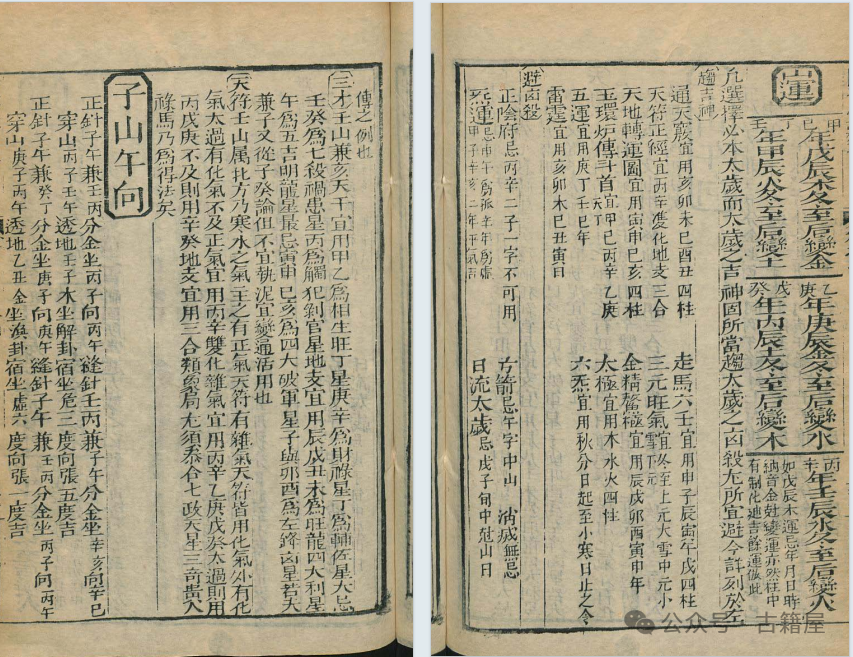 山運
甲己年戊辰木冬至后變金
乙庚年庚辰金冬至后變水
丙辛年壬辰水冬至后變火
丁壬年甲辰火冬至后變土
戊癸年丙辰土冬至后變木
如戊辰木運忌年月日時
納音金尅變運亦然柱中
有制化迪吉餘運倣此
凢選擇必本太歲而大歲之吉神固所當趨太歲之凶殺尤所宜避今詳列於左
趨吉神
通天竅宜用亥卯未巳酉丑四柱
走馬六壬宜用申子辰寅午戌四柱
天符正經宜丙辛雙化地支三合
三元旺氣宜冬至上元大雪中元小雪下元
天地轉運圖宜用寅申巳亥四柱
金精鰲極宜用辰戌卯酉寅申年
玉環炉傳斗首宜甲巳丙辛乙庚
太極宜用木水火四柱
五運宜用庚丁壬巳年
六炁宜用秋分日起至小寒日止之令
雷霆宜用亥卯木巳丑寅日
避凶殺
正陰府忌丙辛二子一字不可用
方箭忌午字中山
消滅無忌
日流太歲忌戊子旬中危山日
傳之例也
三才壬山兼亥天干宜用甲乙爲相生旺丁星庚辛爲財祿星丁爲輔佐星大忌
壬癸爲七殺禍患星丙爲觸犯剝官星地支宜用辰戌丑未爲旺龍四大利星
午爲五吉明龍星最忌寅申巳亥爲四大破軍星子與卯酉爲左鋒凶星若夫
兼子又從子癸論但不宜執泥宜變通活用也
天符壬山属北方乃寒水之氣主之有正氣天符有雜氣天符皆用化氣外有化
氣太過有化氣不及正氣宜用丙辛雙化雜氣宜用丙辛乙庚戊癸太過則用
丙戊庚不及則用辛癸地支宜用三合類象局尤須叅合七政天星三奇貴人
祿馬乃爲得法矣
子山午向
正針子午兼壬丙分金坐丙子向丙午縫針壬丙兼子午分金坐辛亥向辛巳
穿山丙子壬午透地壬子木坐解卦宿坐危三度向張五度吉
正針子午兼癸丁分金坐庚子向庚午縫針子午兼壬丙分金坐丙子向丙午
穿山庚子丙午透地乙丑金坐渙卦宿坐虛六度向張一度吉
公众号·古籍屋